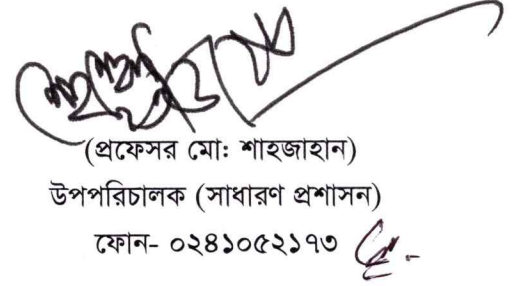 (প্রফেসর মো: শাহজাহান)
উপপরিচালক (সাধারণ প্রশাসন)
ফোন- ০২৪১০৫২১৭৩